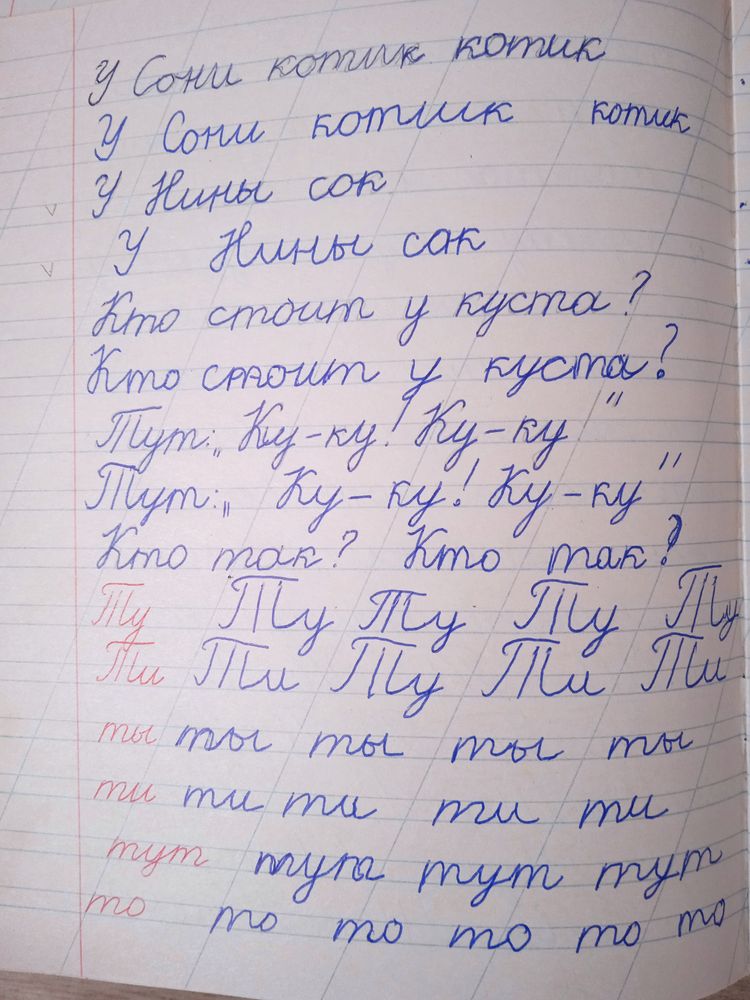 У Сони котик котик
У Сони котик котик
У Нины сок
У Нины сок
Кто стоит у куста?
Кто стоит у куста?
Тут: „Ку-ку! Ку-ку"
Тут: „Ку-ку! Ку-ку"
Кто так? Кто так?
Ту Ту Ту Ту Ту
Ти Ти Ту Ти Ти
ты ты ты ты ты
ти ти ти ти ти
тут тут тут тут
то то то то то то